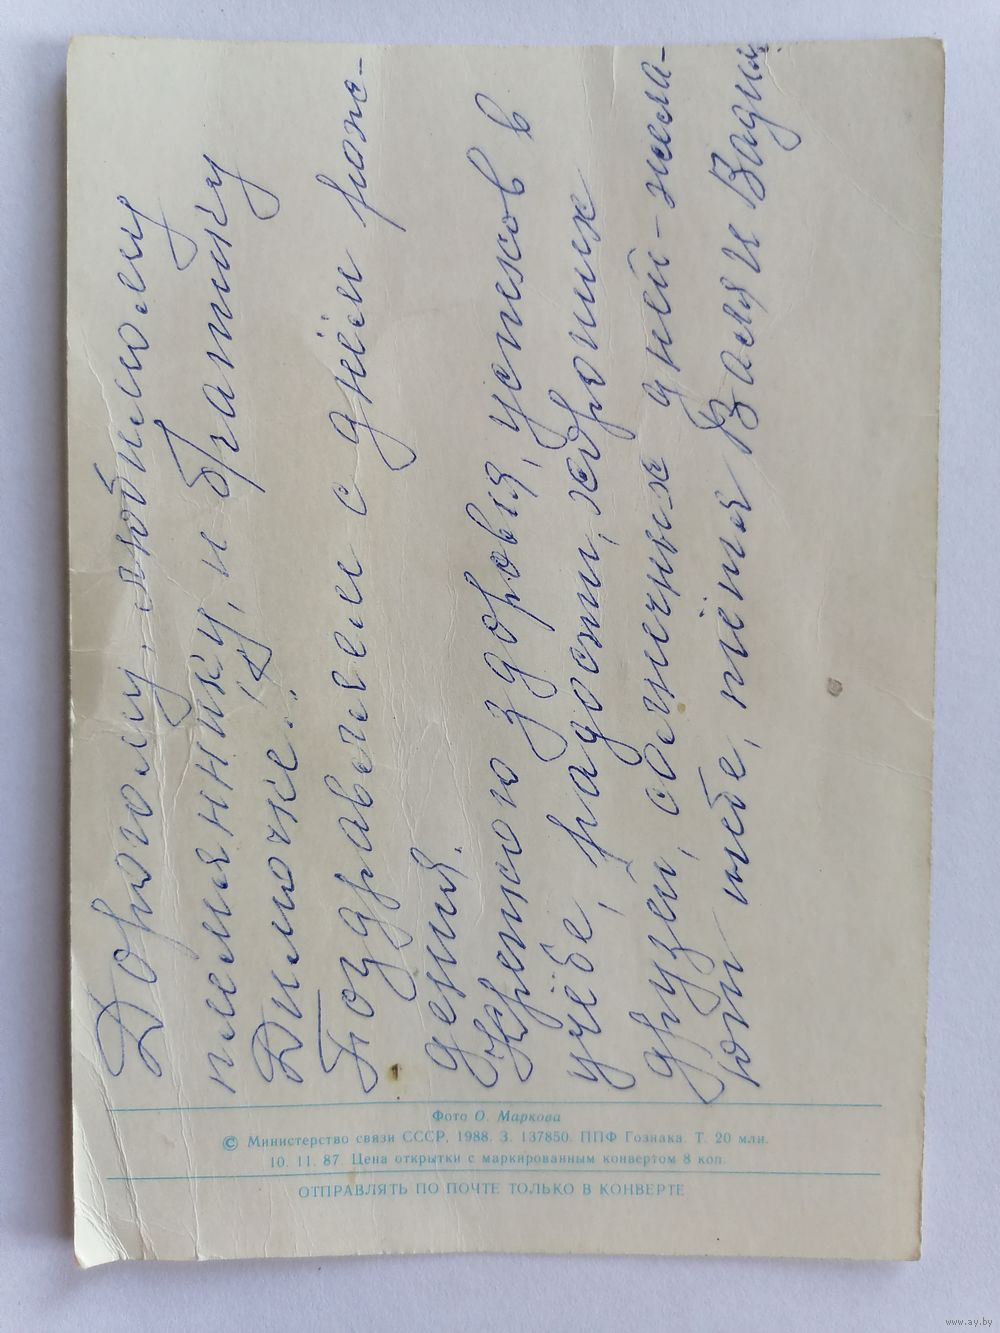 Дорогому, любимому
племяннику, и братику
Димочке!
Поздравляем с днём рож-
дения.
Крепкого здоровья, успехов в
учёбе, радости, хороших
друзей, солнечных дней - жела-
ют тебе, тётя Валя и Вадик
Фото О. Маркова
© Министерство связи СССР, 1988. З. 137850. ППФ Гознака. Т. 20 млн.
10. 11. 87. Цена открытки с маркированным конвертом 8 коп.
ОТПРАВЛЯТЬ ПО ПОЧТЕ ТОЛЬКО В КОНВЕРТЕ
www.ay.by